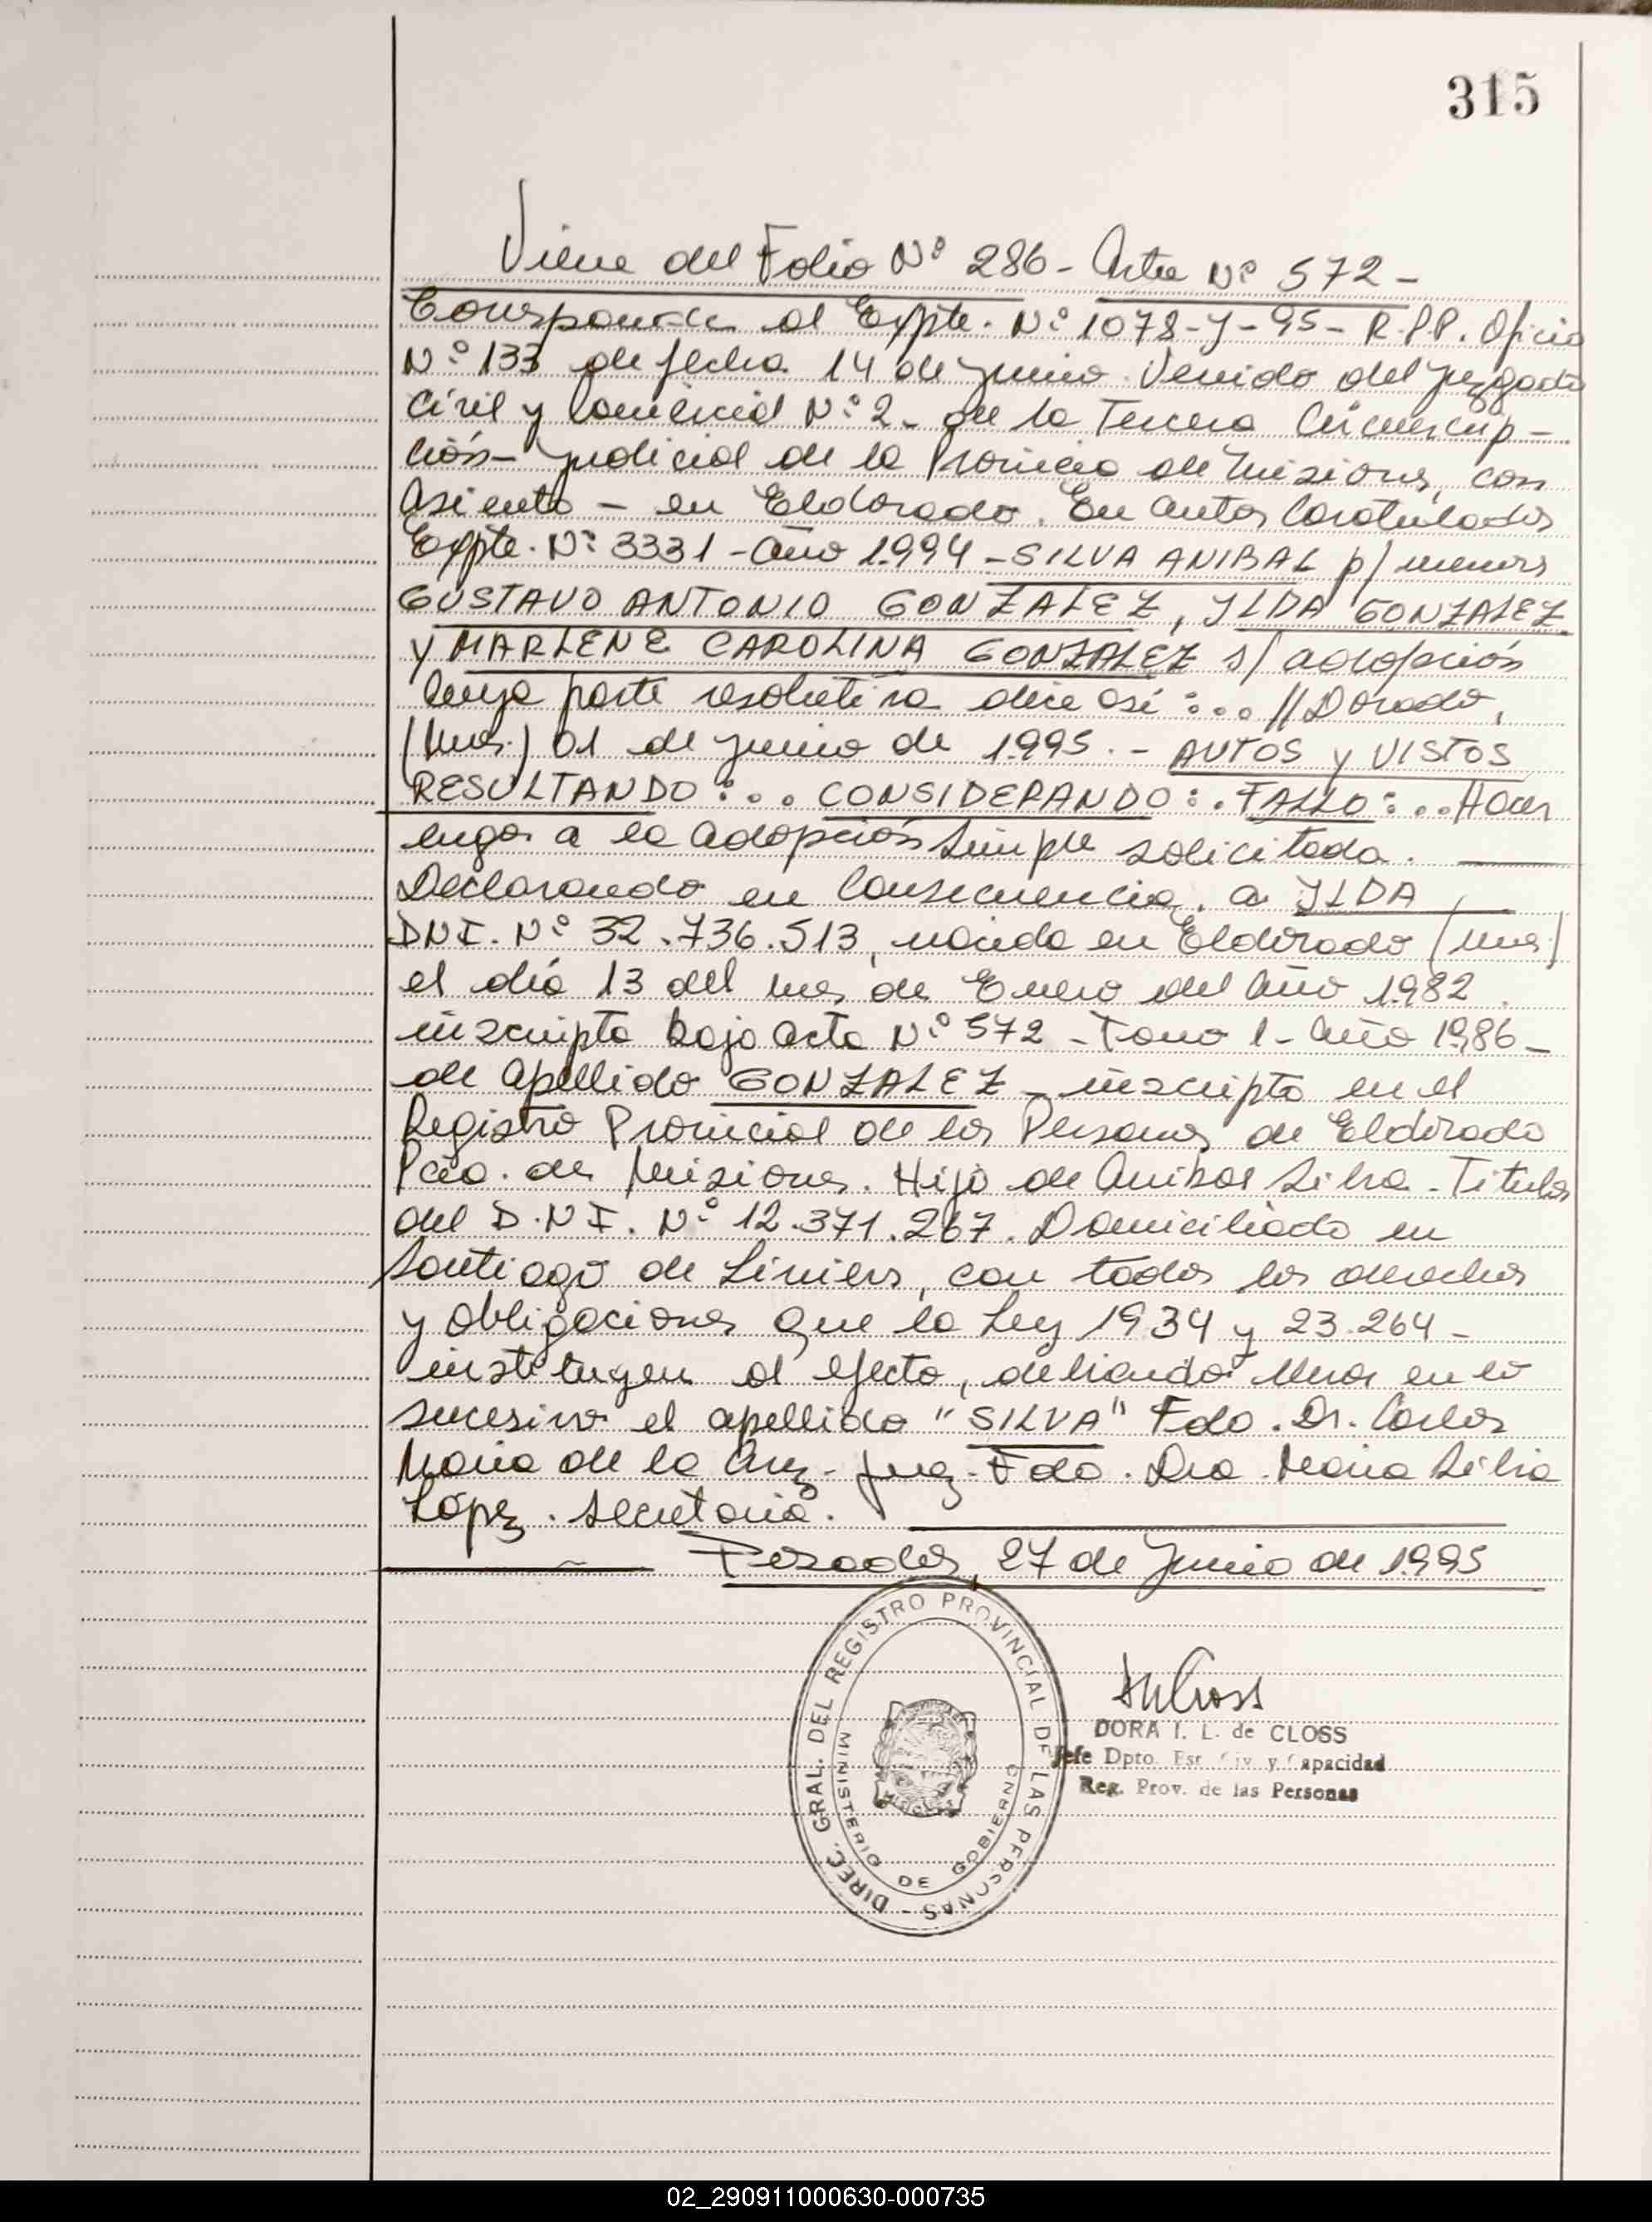 315
Viene del Folio Nº 286 - Acta Nº 572 -
Corresponde al Expte. Nº 1078-J-95 - R.P.P. Oficio
Nº 133 de fecha 14 de junio. Venido del Juzgado
Civil y Comercial Nº 2 - de la Tercera Circunscrip-
ción - Judicial de la Provincia de Misiones, con
Asiento - en Eldorado. En autos Caratulados
Expte. Nº 3331 - Año 1.994 - SILVA ANIBAL p/ menores
GUSTAVO ANTONIO GONZALEZ, YLDA GONZALEZ
y MARLENE CAROLINA GONZALEZ s/ adopción
Cuya parte resolutiva dice así: ... // Dorado,
(Mnes.) 01 de junio de 1.995. - AUTOS y VISTOS
RESULTANDO: ... CONSIDERANDO: . FALLO: ... Hacer
lugar a la adopción Simple solicitada.
Declarando en Consecuencia, a YLDA
DNI. Nº 32.736.513, nacida en Eldorado (Mnes.)
el día 13 del mes de Enero del Año 1.982
inscripta bajo acta Nº 572 - Tomo 1 - Año 1986 -
de Apellido GONZALEZ - inscripta en el
Registro Provincial de las Personas de Eldorado
Pcia. de Misiones. Hija de Anibal Silva - Titular
del D.N.I. Nº 12.371.267. Domiciliado en
Santiago de Liniers, con todos los derechos
y obligaciones que la Ley 19134 y 23.264 -
instituyen al efecto, debiendo llevar en lo
sucesivo el apellido "SILVA" Fdo. Dr. Carlos
Maria de la Cruz - Juez - Fdo. Dra. Maria Silvia
López. Secretaria.
Posadas, 27 de Junio de 1.995
DIREC. GRAL. DEL REGISTRO PROVINCIAL DE LAS PERSONAS -
MINISTERIO DE GOBIERNO
DORA I. L. de CLOSS
Jefe Dpto. Est. Civ. y Capacidad
Reg. Prov. de las Personas
02_290911000630-000735